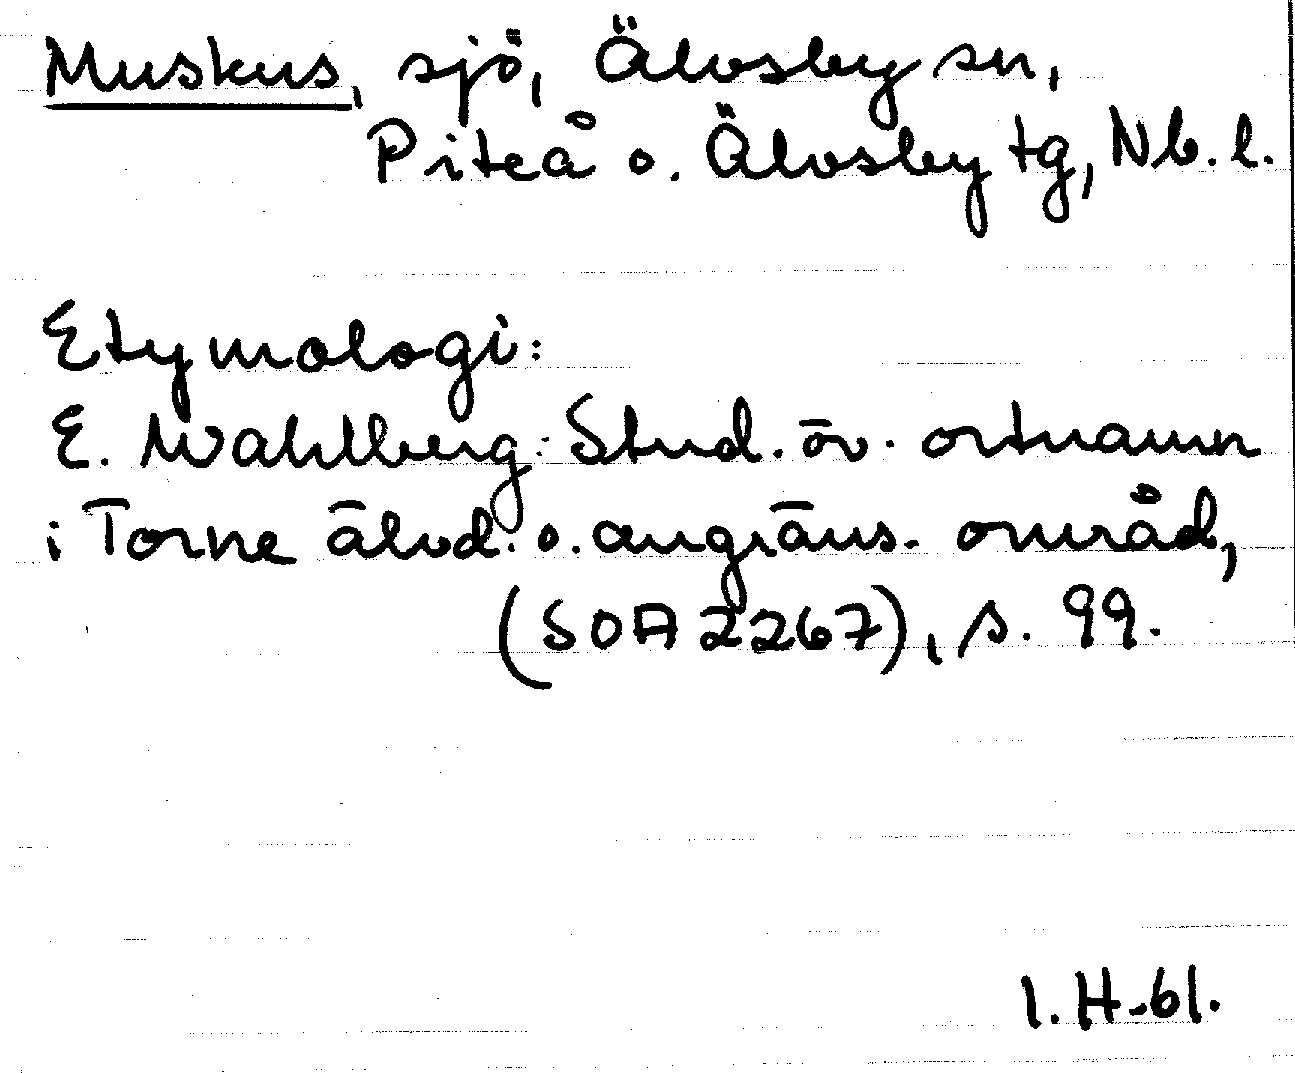 Muskus, sjö, Älvsby sn,
Piteå o. Älvsby tg, Nb. l.
Etymologi:
E. Wahlberg: Stud. öv. ortnamn
i Torne älvd. o. angräns. områd,
(SOA 2267), s. 99.
I. H-61.